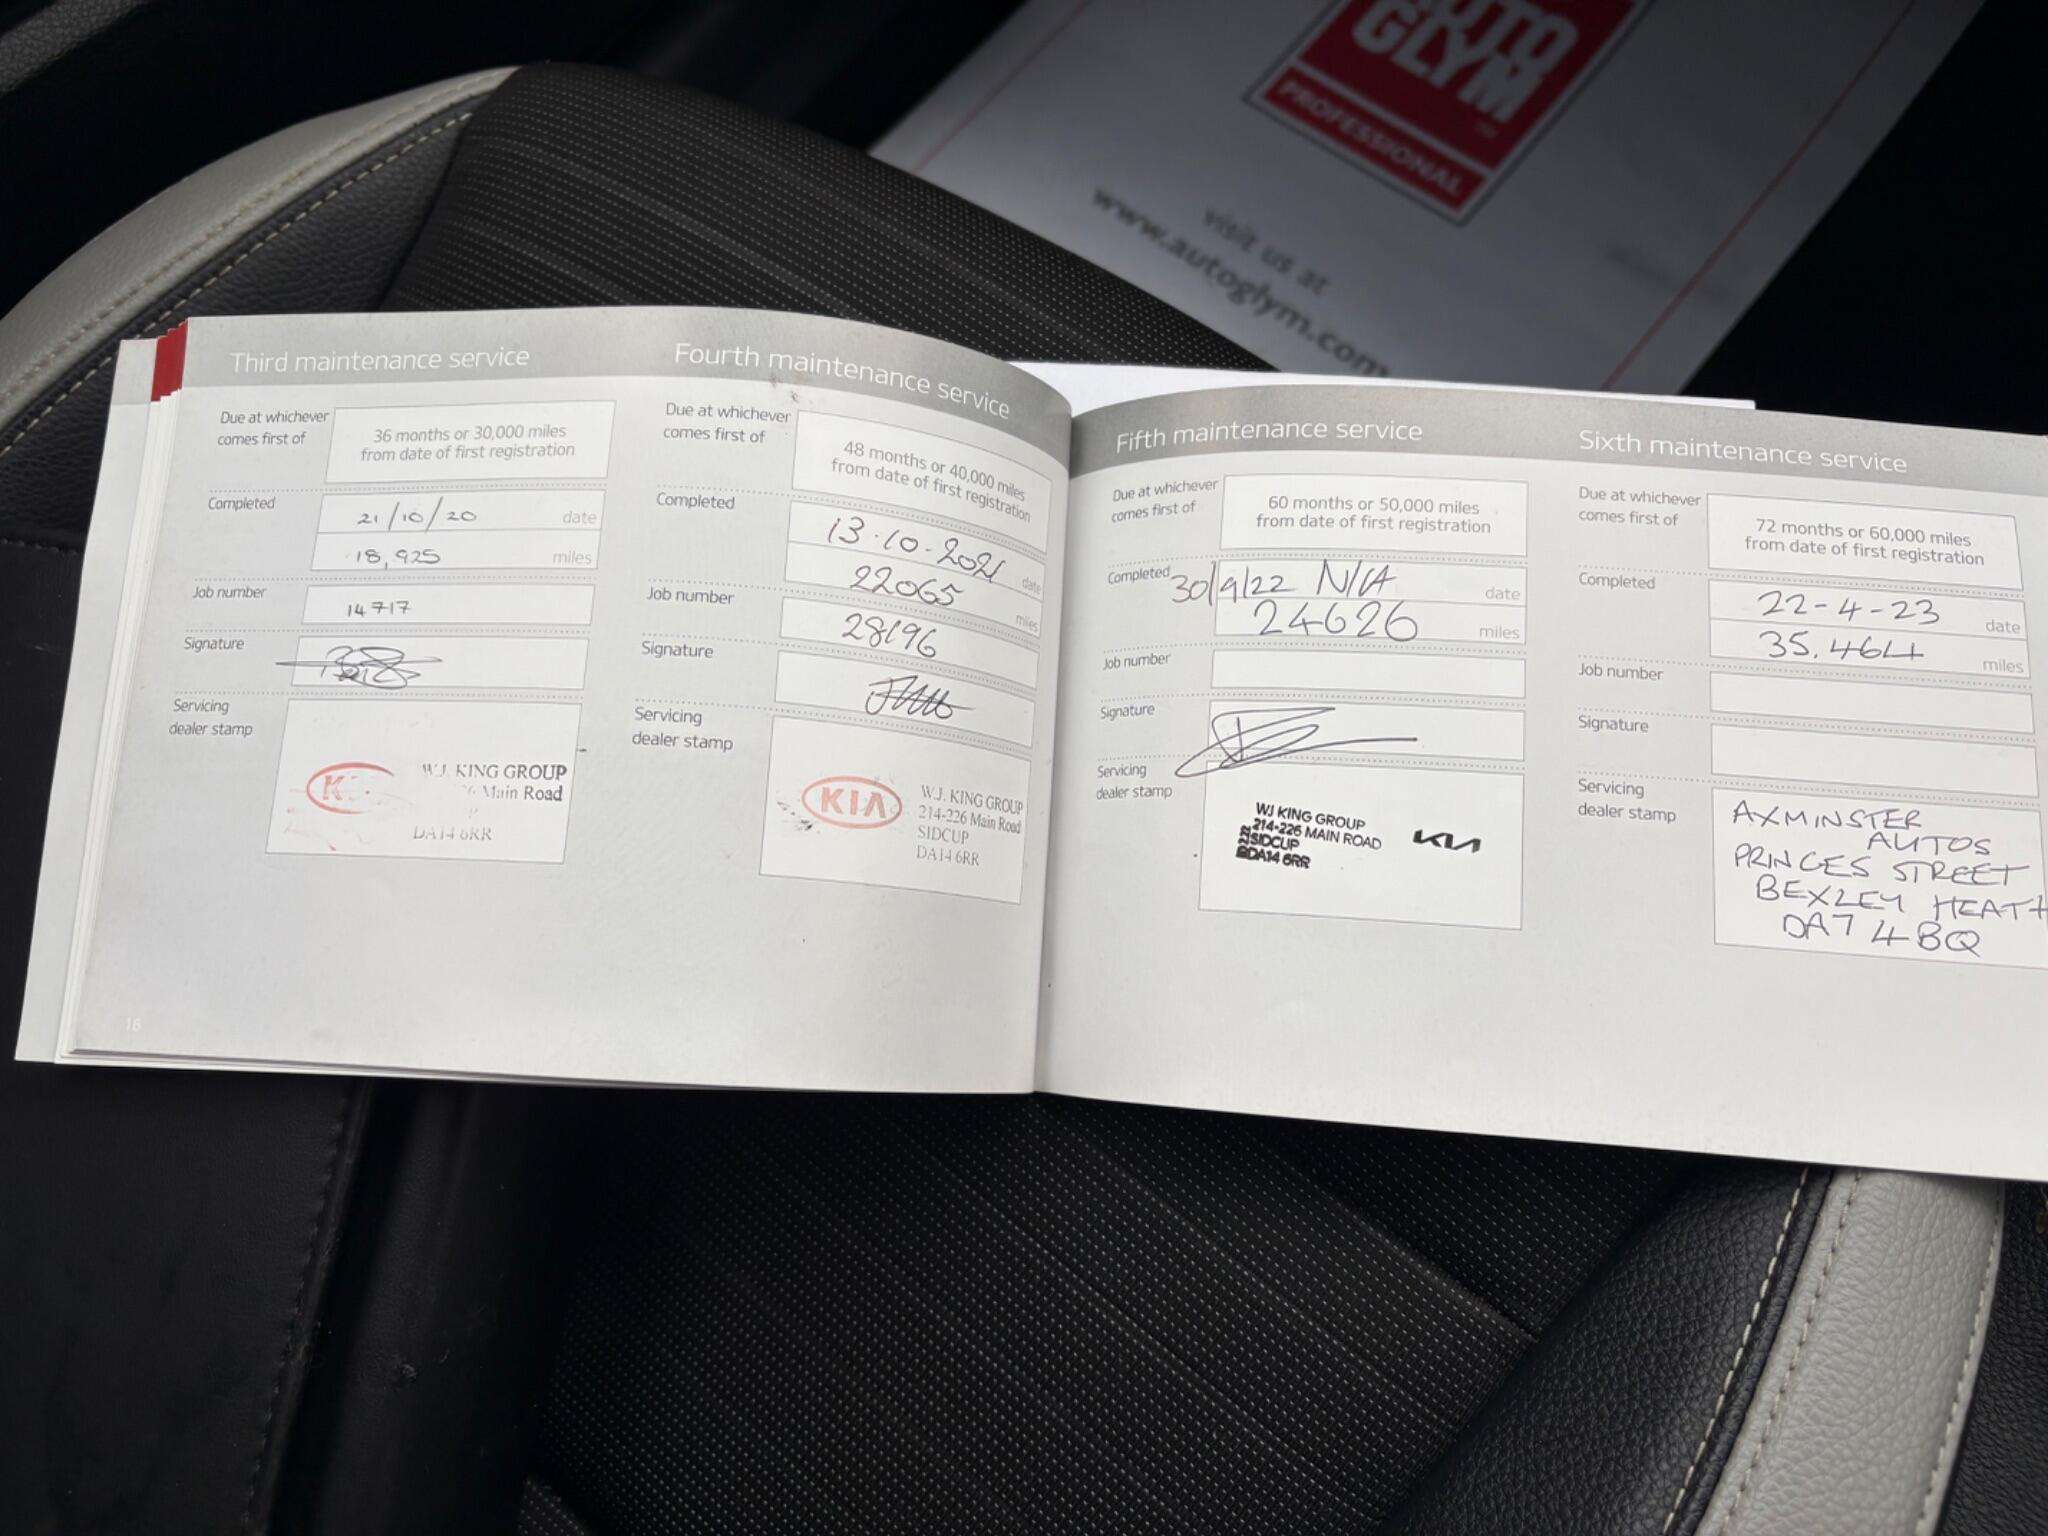 AUTO
GLYM
PROFESSIONAL
visit us at
www.autoglym.com
Third maintenance service
Due at whichever
comes first of
36 months or 30,000 miles
from date of first registration
Completed
21/10/20 date
18,925 miles
Job number
14717
Signature
Servicing
dealer stamp
W.J. KING GROUP
Main Road
DA14 6RR
16
Fourth maintenance service
Due at whichever
comes first of
48 months or 40,000 miles
from date of first registration
Completed
13.10.2021 date
22065 miles
Job number
28196
Signature
Servicing
dealer stamp
KIA
W.J. KING GROUP
214-226 Main Road
SIDCUP
DA14 6RR
Fifth maintenance service
Due at whichever
comes first of
60 months or 50,000 miles
from date of first registration
Completed
30/9/22 N/A date
24626 miles
Job number
Signature
Servicing
dealer stamp
WJ KING GROUP
214-226 MAIN ROAD
SIDCUP
DA14 6RR
KIA
Sixth maintenance service
Due at whichever
comes first of
72 months or 60,000 miles
from date of first registration
Completed
22-4-23 date
35.464 miles
Job number
Signature
Servicing
dealer stamp
AXMINSTER
AUTOS
PRINCES STREET
BEXLEY HEATH
DA7 4BQ